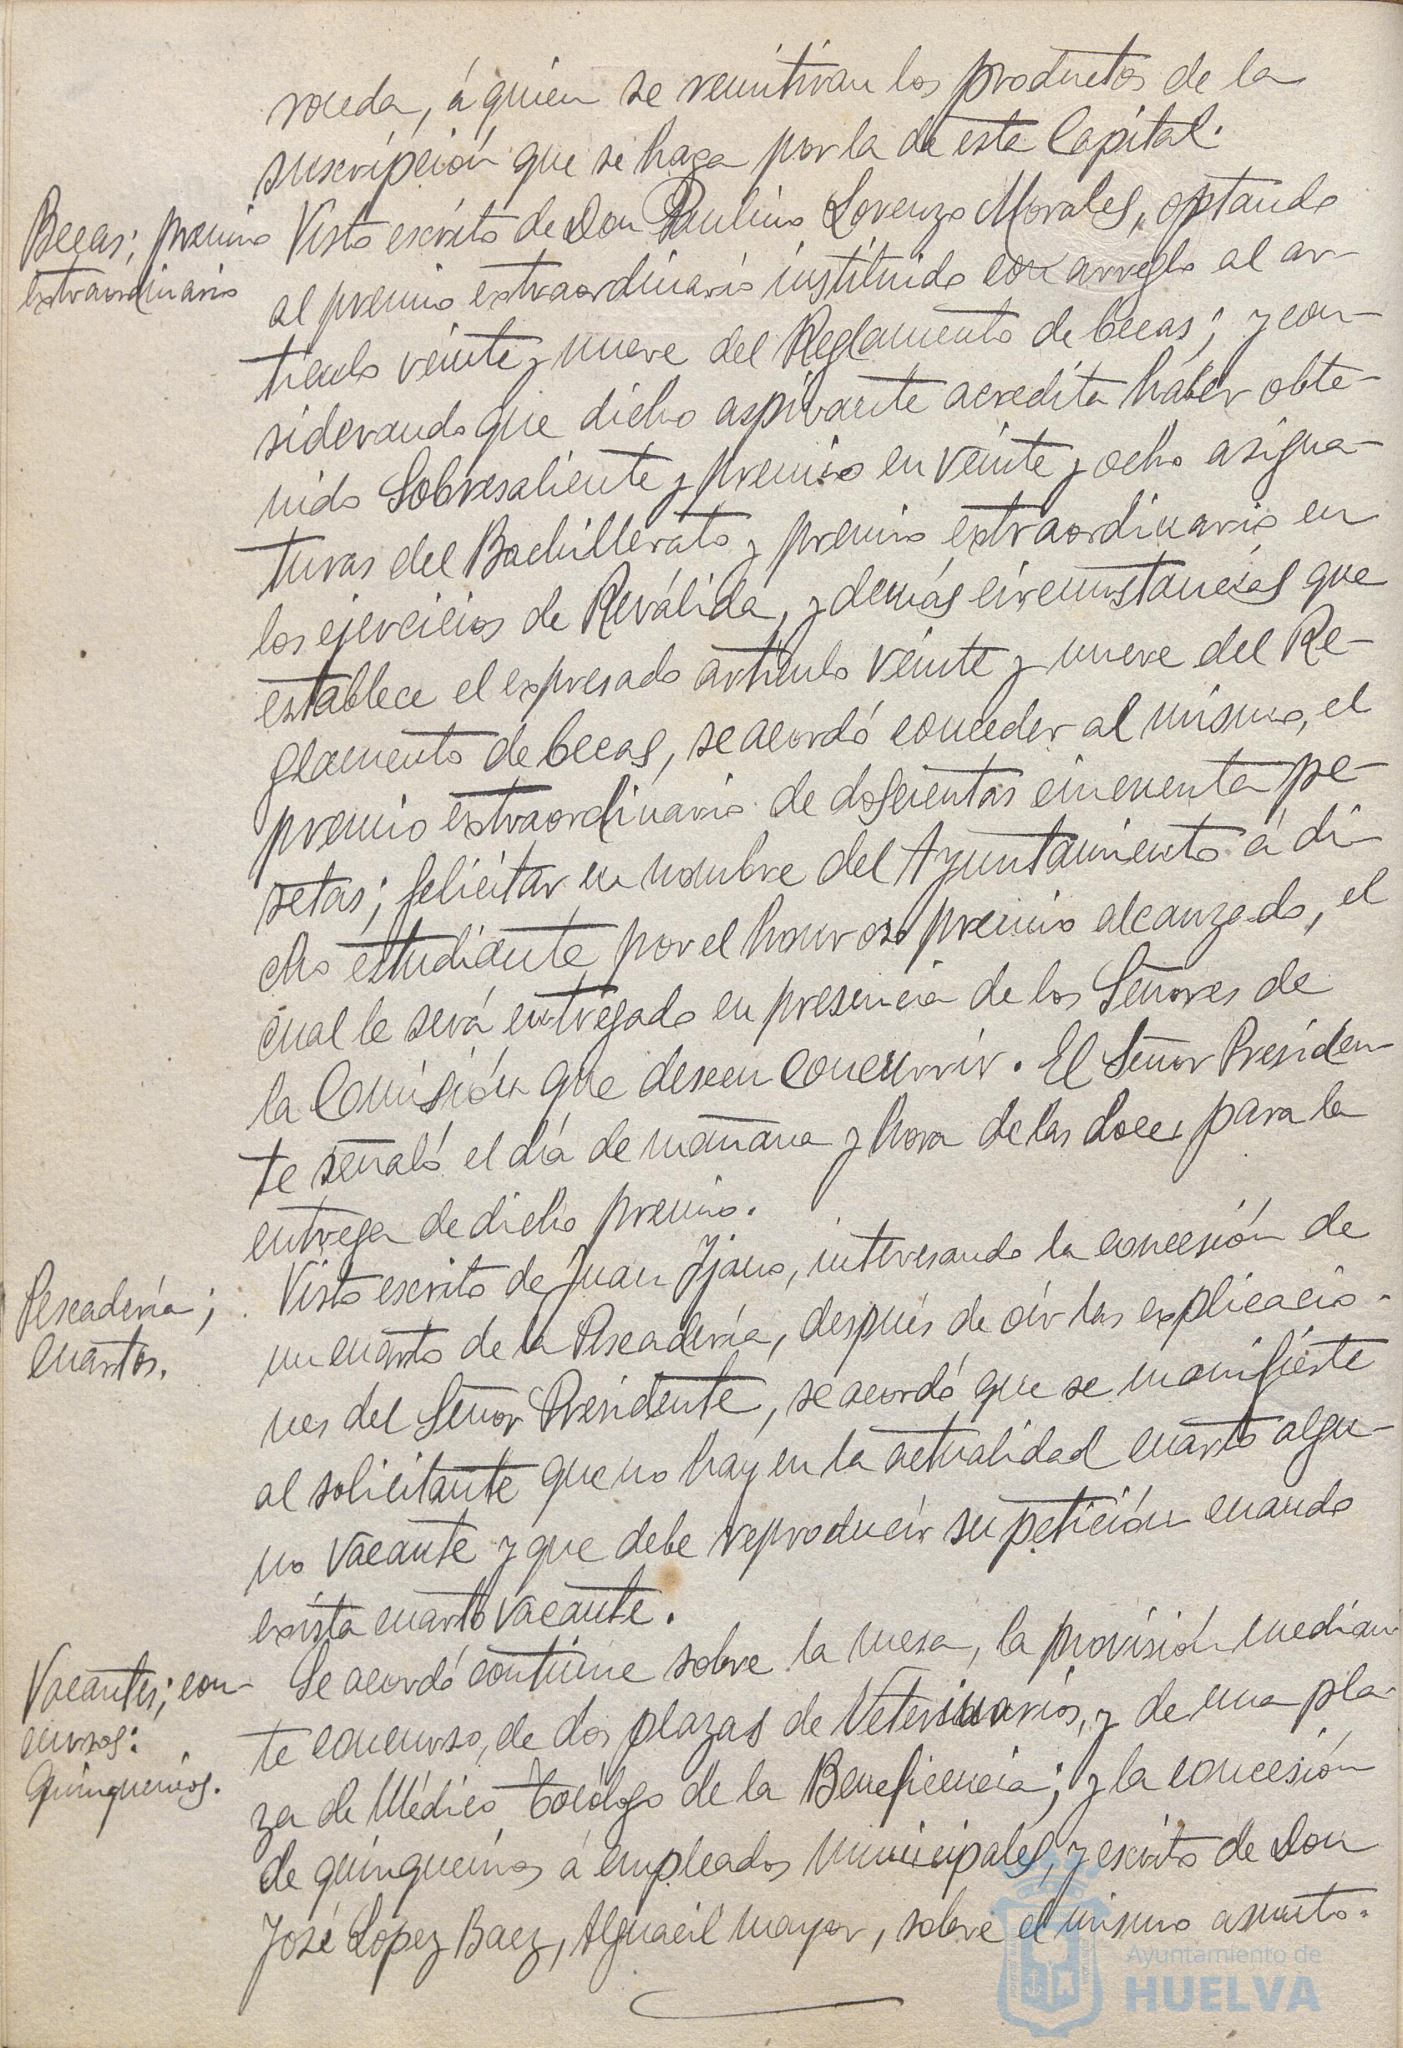 roneda, á quien se remitiran los productos de la
suscripción que se haga por la de esta Capital.
Becas; premio
extraordinario
Visto escrito de Don Paulino Lorenzo Morales, optando
al premio extraordinario instituido con arreglo al ar-
tículo veinte y nueve del Reglamento de becas; y con-
siderando que dicho aspirante acredita haber obte-
nido Sobresaliente y premio en veinte y ocho asigna-
turas del Bachillerato y premio extraordinario en
los ejercicios de Reválida, y demás circunstancias que
establece el expresado artículo veinte y nueve del Re-
glamento de becas, se acordó conceder al mismo, el
premio extraordinario de doscientas cincuenta pe-
setas; felicitar en nombre del Ayuntamiento á di-
cho estudiante por el honroso premio alcanzado, el
cual le será entregado en presencia de los Señores de
la Comisión que deseen concurrir. El Señor Presiden-
te señaló el día de mañana y hora de las doce, para la
entrega de dicho premio.
Pescadería;
cuartos.
Visto escrito de Juan Ijano, interesando la concesión de
un cuarto de la Pescadería, después de oír las explicacio-
nes del Señor Presidente, se acordó que se manifieste
al solicitante que no hay en la actualidad cuarto algu-
no vacante y que debe reproducir su petición cuando
exista cuarto vacante.
Vacantes; con-
cursos:
Quinquenios.
Se acordó continúe sobre la mesa, la provisión median-
te concurso, de dos plazas de Veterinarios, y de una pla-
za de Médico Tocólogo de la Beneficencia; y la concesión
de quinquenios á empleados municipales, y escrito de Don
José López Baez, Alguacil mayor, sobre el mismo asunto.
Ayuntamiento de
HUELVA